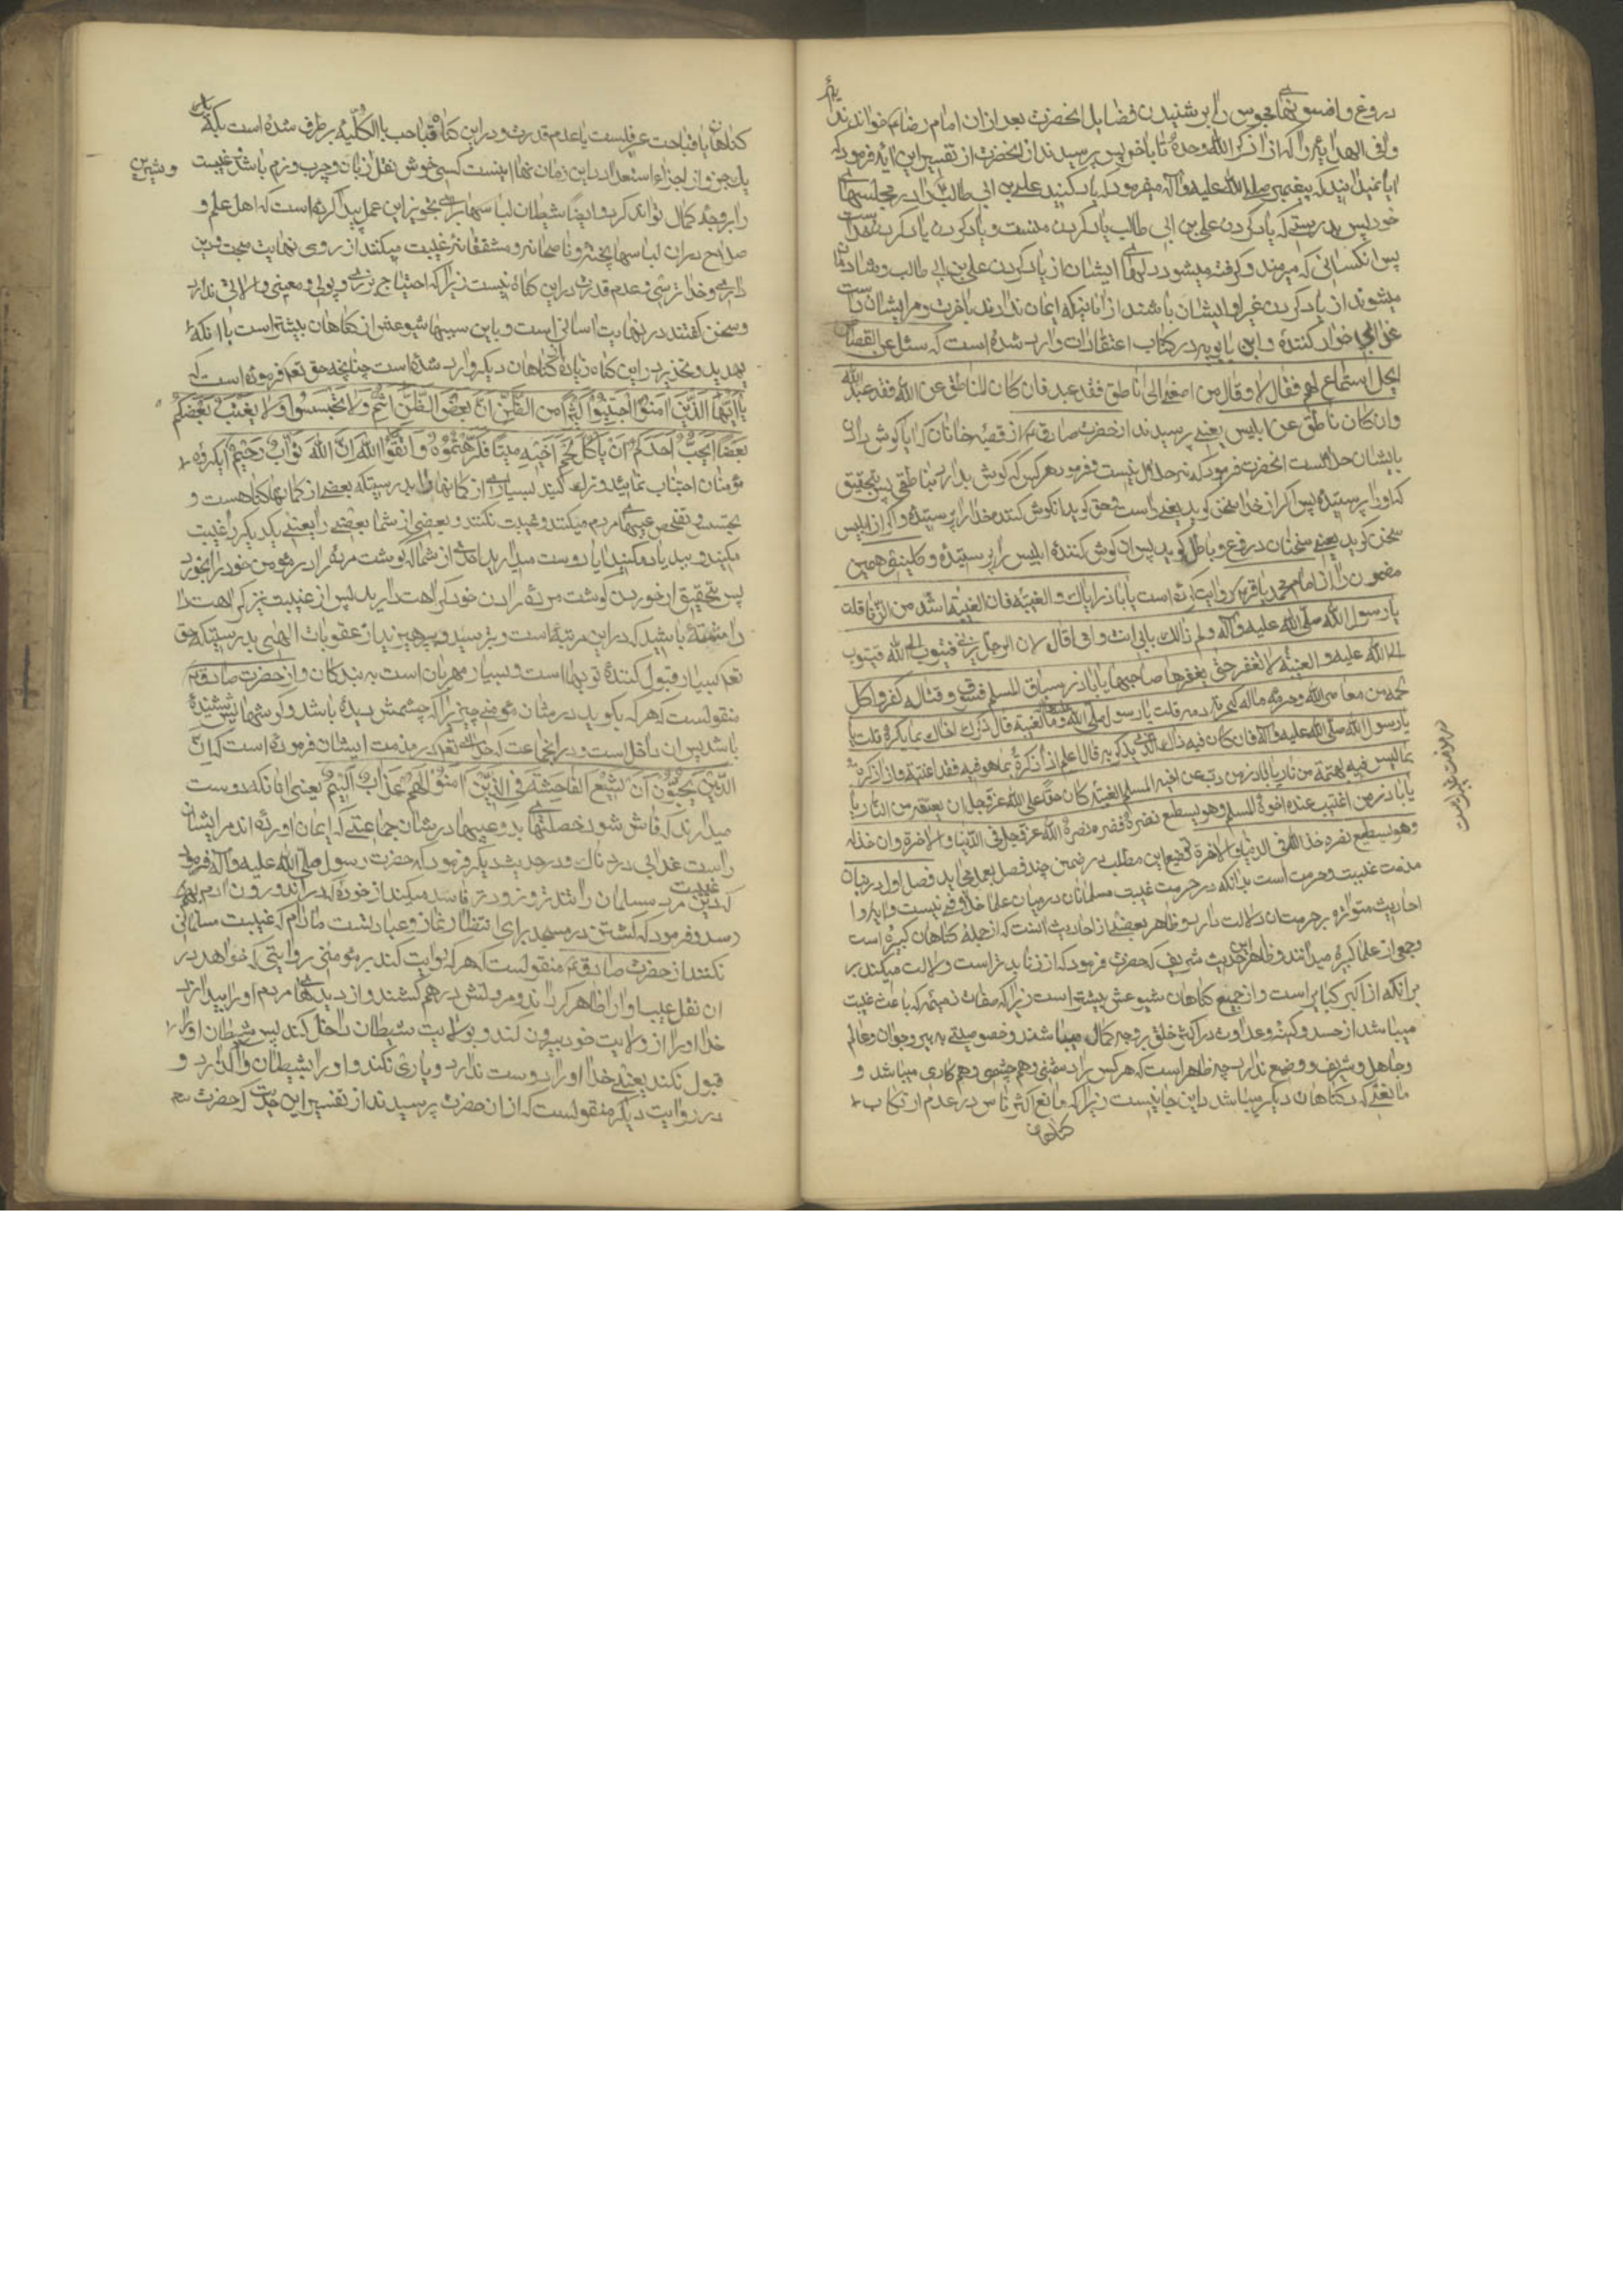 دروغ و افسونهای مجوس را بر شنیدن فضایل انحضرت بعد از ان امام رضا ع خواندند
که از ذکر الله وحده تا باخر پس پرسیدند از انحضرت از تفسیر این ایه فرمود که
ایا نمیدانید که پیغمبر صلی الله علیه و آله میفرمود که یاد کنید علی بن ابی طالب را در مجلسهای
خود پس بدرستی که یاد کردن علی بن ابی طالب یاد کردن منست و یاد کردن یاد کردن خداست
پس انکسانی که میرمند و گرفته میشود دلهای ایشان از یاد کردن علی بن ابی طالب و شادمان
میشوند از یاد کردن غیر او ایشان باشند از انانیکه ایمان ندارند باخرت و مر ایشان راست
عذابی خوار کننده و ابن بابویه در کتاب اعتقادات وارد شده است که سئل عن القصاص
ایحل استماع لهم فقال لا و قال من اصغی الی ناطق فقد عبده فان کان الناطق عن الله فقد عبد الله
وان کان ناطق عن ابلیس یعنی پرسیدند از حضرت صادق ع از قصه خانان که ایا گوش دادن
بایشان حلالست انحضرت فرمود که نه حلال نیست و فرمود هر کس که گوش بدارد بناطقی پس بتحقیق
که او را پرستیده پس اگر از خدا سخن کوید یعنی راست و حق کوید ان گوش کننده خدا را پرستیده و اگر از ابلیس
سخن کوید یعنی سخنان دروغ و باطل کوید پس ان گوش کننده ابلیس را پرستیده و کلینی همین
مضمون را از امام محمد باقر ع روایت کرده است یا باذر ایاک و الغیبة فان الغیبة اشد من الزنا قلت
یا رسول الله صلی الله علیه و آله و لم ذالک بابی انت و امی قال لان الرجل یزنی فیتوب الی الله فیتوب
الله علیه و الغیبة لا تغفر حتی یغفرها صاحبها یا باذر سباب المسلم فسوق و قتاله کفر و اکل
لحمه من معاصی الله و حرمة ماله کحرمة دمه قلت یا رسول الله و ما الغیبة قال ذکرک اخاک بما یکره قلت یا
رسول الله صلی الله علیه و آله فان کان فیه ذاک الذی یذکر به قال اعلم اذا ذکرته بما هو فیه فقد اغتبته و اذا ذکرته
بما لیس فیه بهته یا باذر من ذب عن اخیه المسلم الغیبة کان حقا علی الله عز و جل ان یعتقه من النار یا
یا باذر من اغتیب عنده اخوه المسلم و هو یستطیع نصره فنصره نصره الله عز و جل فی الدنیا و الاخرة و ان خذله
و هو یستطیع نصره خذله الله فی الدنیا و الاخرة توضیح این مطلب در ضمن چند فصل بعمل می اید فصل اول در بیان
مذمت غیبت و حرمت است بدانکه در حرمت غیبت مسلمانان در میان علما خلافی نیست و ایه و
احادیث متواتره بر حرمت ان دلالت دارد و ظاهر بعضی از احادیث انست که از جمله کناهان کبیره است
و جمعی از علما کبیره میدانند و ظاهر این حدیث شریف که حضرت فرمود که از زنا بدتر است دلالت میکند بر
بر انکه از اکبر کبایر است و از جمیع کناهان شیوعش بیشتر است زیرا که صفات ذمیمه که باعث غیبت
میباشد از حسد و کینه و عداوت در اکثر خلق بر وجه کمال میباشند و خصوصیتی به پیر و جوان و عالم
و جاهل و شریف و وضیع ندارد چه ظاهر است که هر کس را دشمنی و هم چشمی و هم کاری میباشد و
مانعی که در کناهان دیگر میباشد در این جا نیست زیرا که مانع اکثر ناس در عدم ارتکاب
کناهان
کناهان یا قباحت عرفیست یا عدم قدرت و در این کناه قباحت بالکلیه بر طرف شده است بلکه
یک جزو از اجزاء استعداد این زمان نما اینست کسی خوش نقل زبان و چرب و نرم باشد و غیبت
و شیرین
را بر وجه کمال تواند کرد و ایضا شیطان لباسها برای تجویز این عمل پیدا کرده است که اهل علم و
صلاح در ان لباسها پخته و ناصحانه و مشفقانه غیبت میکنند از روی نهایت صحت و دین
داری و خدا ترسی و عدم قدرت در این کناه نیست زیرا که احتیاج بزری و پولی و معینی و الاتی ندارد
و سخن گفتن در نهایت اسانی است و باین سببها شیوعش از کناهان بیشتر است با انکه
تهدید و تحذیر در این کناه زیاده از کناهان دیگر وارد شده است چنانچه حق تعالی فرموده است که
یا ایها الذین امنوا اجتنبوا کثیرا من الظن ان بعض الظن اثم و لا تجسسوا و لا یغتب بعضکم
بعضا ایحب احدکم ان یاکل لحم اخیه میتا فکرهتموه و اتقوا الله ان الله تواب رحیم ایگروه
مؤمنان اجتناب نمائید و ترک کنید بسیاری از کمانها را بدرستیکه بعضی از کمانها کناهست و
تجسس و تفحص عیبهای مردم میکنند و غیبت نکنند و بعضی از شما بعضی را یعنی یکدیگر را غیبت
مکنید و ببد یاد مکنید ایا دوست میدارد احدی از شما که گوشت مرده برادر مؤمن خود را بخورد
پس بتحقیق از خوردن گوشت مرده برادن خود کراهت دارید پس از غیبت نیز کراهت
داشته باشید که در این مرتبه است و بترسید و بپرهیزید از عقوبات الهی بدرستیکه حق
تعالی بسیار قبول کننده توبها است و بسیار مهربان است به بندکان و از حضرت صادق ع
منقولست که هر که بگوید در شان مؤمنی چیزی را که چشمش دیده باشد و گوشهایش شنیده
باشد پس ان داخل است در انجماعت که حق تعالی در مذمت ایشان فرموده است که ان
الذین یحبون ان تشیع الفاحشة فی الذین امنوا لهم عذاب الیم یعنی انانکه دوست
میدارند که فاش شود خصلتهای بد و عیبها در شان جماعتی که ایمان اورده اند مر ایشان
راست عذابی دردناک و در حدیث دیگر فرمود که حضرت رسول صلی الله علیه و آله فرمود
که غیبت دین مرد مسلمان را تندتر و زودتر فاسد میکند از خوره که در اندرون ادم بهم
رسد و فرمود که نشستن در مسجد برای انتظار نماز عبادتست مادام که غیبت مسلمانی
نکنند از حضرت صادق ع منقولست که هر که روایت کند بر مؤمنی روایتی که خواهد در
ان نقل عیب او را ظاهر گرداند و مروتش در هم شکند و از دیدهای مردم او را بیندازد
خدا او را از ولایت خود بیرون کند و بولایت شیطان داخل کند پس شیطان او را
قبول نکند یعنی خدا او را دوست ندارد و یاری نکند و او را بشیطان واگذارد و
در روایت دیگر منقولست که از ان حضرت پرسیدند از تفسیر این حدیث که حضرت